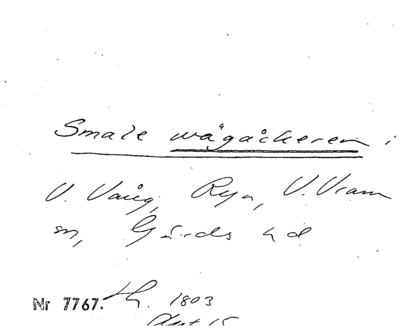 Smale wägåckeren i
V. Vång, Ryn, V. Vram
sn, Gärds hd
Nr 7767. 1803